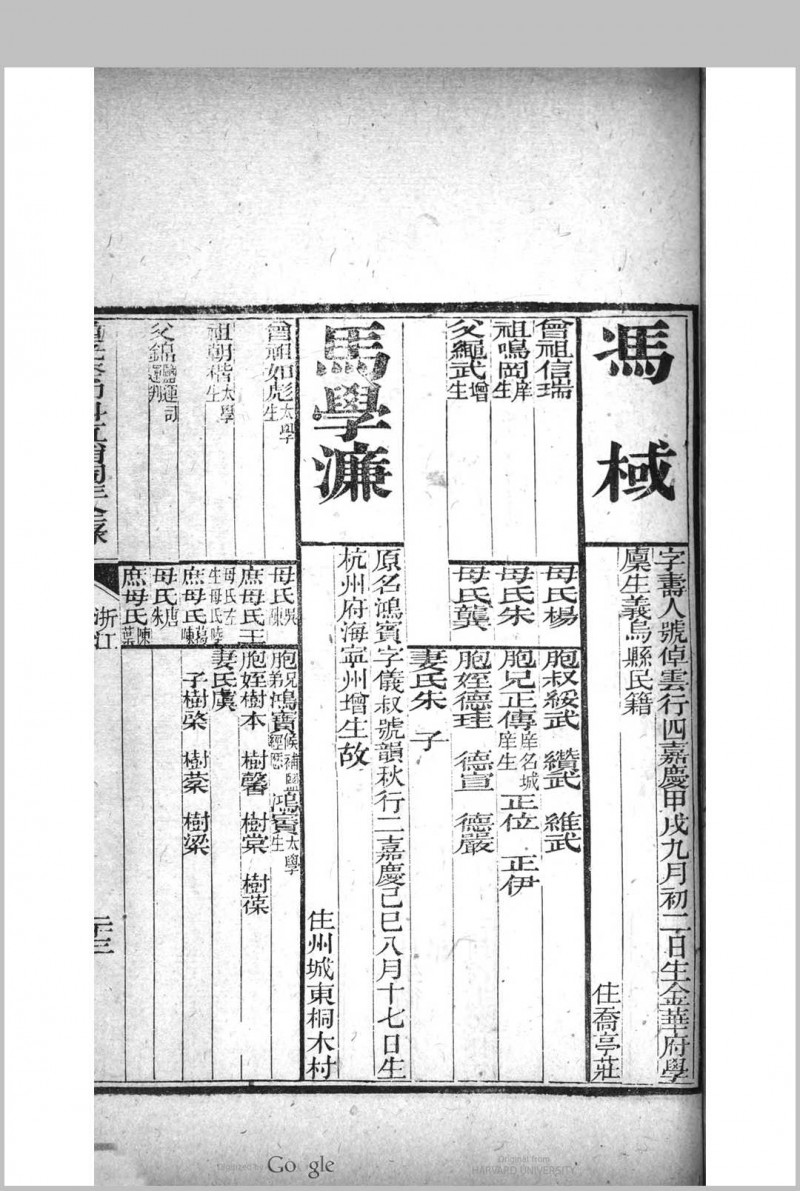 馮棫
字壽人號倬雲行四嘉慶甲戌九月初二日生金華府學
廩生義烏縣民籍
住喬亭莊
曾祖信瑞
祖鳴岡庠生
父繩武增生
母氏楊
母氏朱
母氏龔
胞叔綏武 纘武 維武
胞兄正傳庠名城庠生 正位 正伊
胞姪德珪 德宣 德嚴
妻氏朱 子
馬學濂
原名鴻賓字儀叔號韻秋行二嘉慶己巳八月十七日生
杭州府海寧州增生故
住州城東桐木村
曾祖如彪太學生
祖朝楷太學生
父錦鹽運司運判
母氏吳陳
庶母氏王
母氏左
生母氏陸
庶母氏楊陳
母氏唐朱
庶母氏陳葉
胞兄弟鴻寶候補鹽經歷 鴻賓太學生
胞姪樹本 樹馨 樹棠 樹葆
妻氏虞
子樹棨 樹蘂 樹梁
浙江
二十三
Digitized by Google
Original from
HARVARD UNIVERSITY